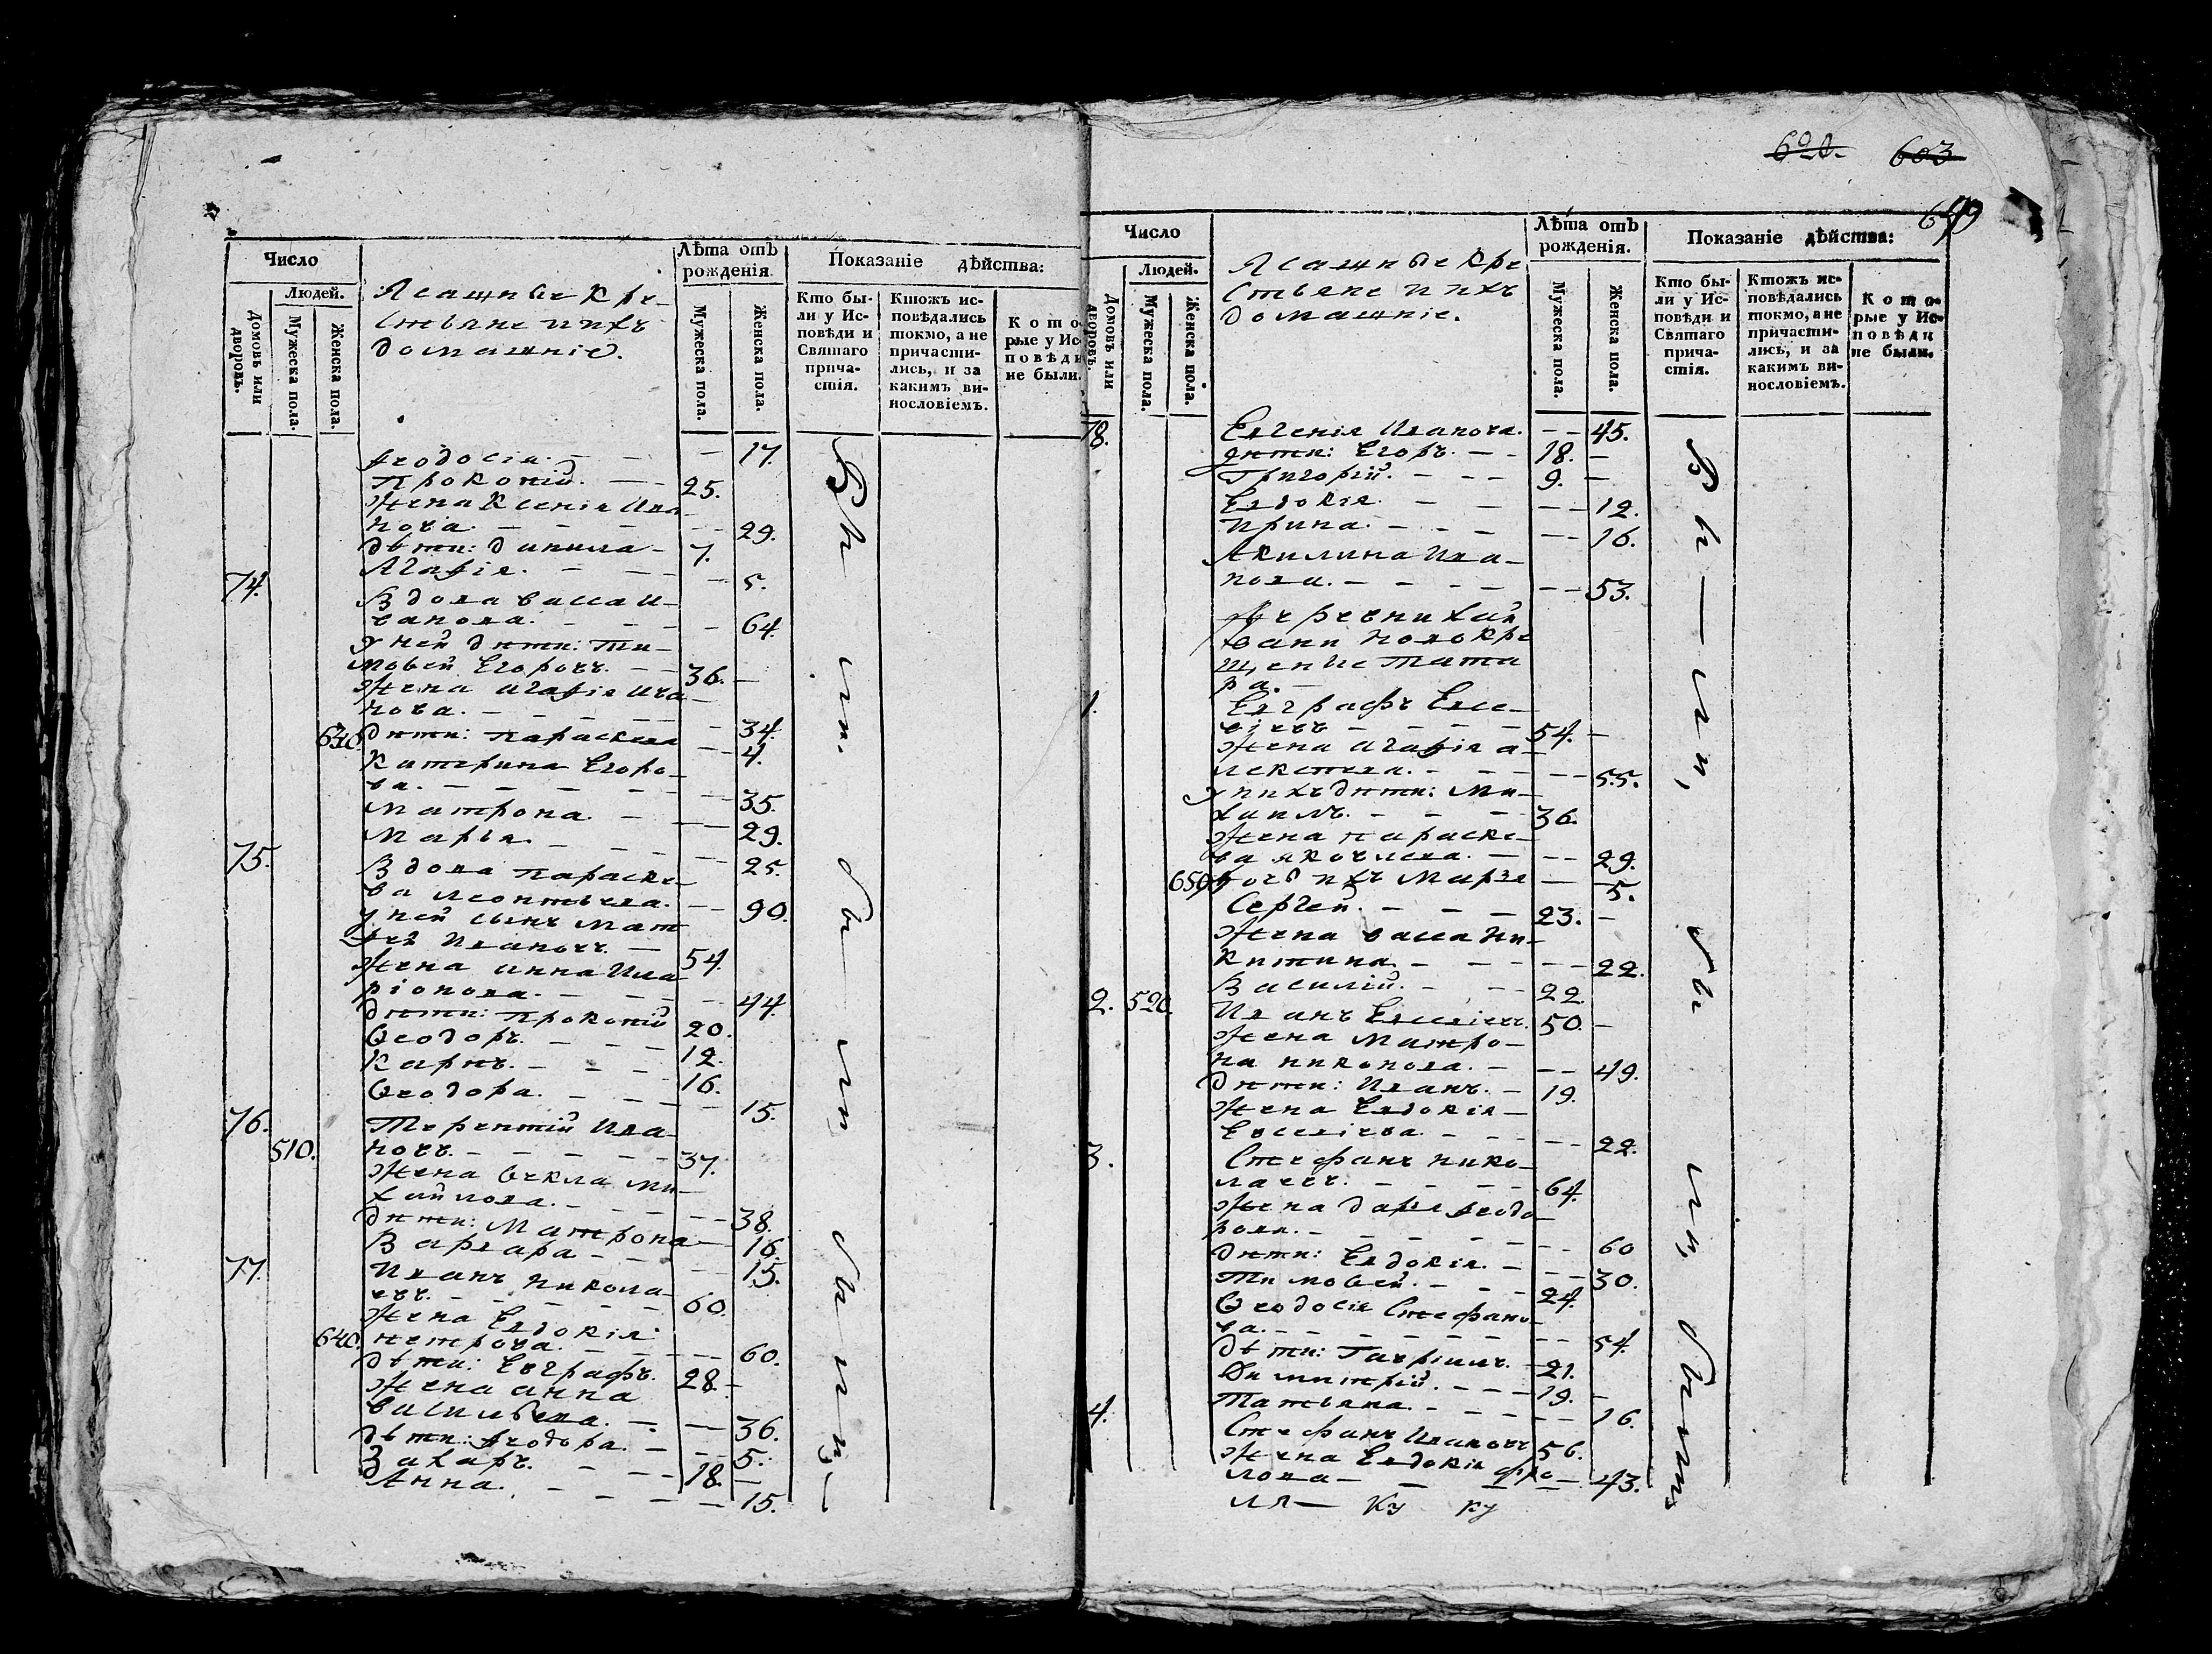 603
649
Число
Людей.
Домовъ или дворовъ.
Мужеска пола.
Женска пола.
Ясашные кре-
стьяне и ихъ
домашніе.
Лѣта отъ
рожденія.
Мужеска пола.
Женска пола.
Показаніе дѣйства:
Кто бы-
ли у Ис-
повѣди и
Святаго
прича-
стія.
Ктожъ ис-
повѣдались
токмо, а не
причасти-
лись, и за
какимъ ви-
нословіемъ.
Кото
рые у Ис
повѣди
не были.
Ѳеодосія. — — 17.
Прокопій. — — 25.
Жена Ксенія Ива
нова. — — — — 29.
дѣти: Данила — 7.
Агафія. — — — 5.
74. Вдова Васса И-
ванова. — — — 64.
у ней дѣти: Ти-
моѳей Егоровъ. — 36. —
Жена Агафія Ива
нова. — — — — 34.
630. дѣти: Параскева — 4.
Катерина Егоро-
ва. — — — — 35.
Матрона. — — 29.
Марья. — — — 25.
75. Вдова Параске-
ва Леонтьева. — 90.
у ней сынъ Мат
ѳей Ивановъ. — 54.
Жена Анна Ила
ріонова. — — — 44.
дѣти: Прокопій 20.
Ѳеодоръ. — — — 12.
Карпъ. — — — 16.
Ѳеодора. — — — 15.
76. Терентій Ива
510. новъ. — — — — 37.
Жена Ѳекла Ми-
хайлова. — — — 38.
дѣти: Матрона — 16.
Варвара — — — 15.
77. Иванъ Никола-
евъ. — — — — 60.
Жена Евдокія
640. Петрова. — — — 60.
дѣти: Евграфъ. 28. —
Жена Анна
Васильева. — — 36.
дѣти: Ѳеодора. — — 5.
Захаръ. — — — 18. —
Анна. — — — — 15.
Бы ли. бы ли бы ли
Число
Людей.
Домовъ или дворовъ.
Мужеска пола.
Женска пола.
Ясашные кре
стьяне и ихъ
домашніе.
Лѣта отъ
рожденія.
Мужеска пола.
Женска пола.
Показаніе дѣйства:
Кто бы-
ли у Ис-
повѣди и
Святаго
прича-
стія.
Ктожъ ис-
повѣдались
токмо, а не
причасти-
лись, и за
какимъ ви-
нословіемъ.
Кото-
рые у Ис-
повѣди
не были.
78. Евгенія Иванова. — — 45.
дѣти: Егоръ. — — 18. —
Григорій. — — — 9. —
Евдокія. — — — — 12.
Ирина. — — — — — 16.
Акилина Ива-
нова. — — — — — 53.
новокре
щеные Тата
ра.
1. Евграфъ Евсе-
віевъ — — — 54. —
Жена Агафія А-
лексѣева. — — — — 55.
у нихъ дѣти: Ми-
хаилъ. — — — 36.
Жена Параске-
ва Яковлева. — — — 29.
650. дочь ихъ Марѳа — 5.
Сергей. — — — 23. —
Жена Васса Ни-
китина. — — — — 22.
Василій. — — — 22.
2. 520. Иванъ Евсевіевъ. 50. —
Жена Матро-
на Никонова. — — — 49.
дѣти: Иванъ. — 19.
Жена Евдокія —
Евсевіева. — — — — 22.
3. Стефанъ Нико-
лаевъ. — — — — 64.
Жена Дарья Ѳеодо-
рова. — — — — — 60
дѣти: Евдокія. — — — 30.
Тимоѳей. — — — 24.
Ѳеодосія Стефано-
ва. — — — — — 54.
дѣти: Гавріилъ. — 21.
Димитрій. — — — 19. —
Татьяна. — — — — 16.
4. Стефанъ Ивановъ 56.
Жена Евдокія Фро
лова — — — — 43.
Бы — ли, бы ли, были